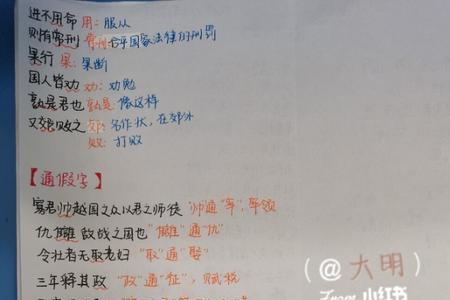 进不用命 用：服从
则有常刑 常刑：合乎国家法律的刑罚
果行 果：果断
国人皆劝 劝：劝勉
孰是君也 孰是：像这样
又郊败之 郊：名作状，在郊外
败：打败
【通假字】
寡君帅越国之众以君之师徒 "帅"通"率"，率领
仇雠敌战之国也 "雠"通"仇"
令壮者无取老妇 "取"通"娶"
三年释其政 "政"通"征"，赋税
(@大明)
From 小红书